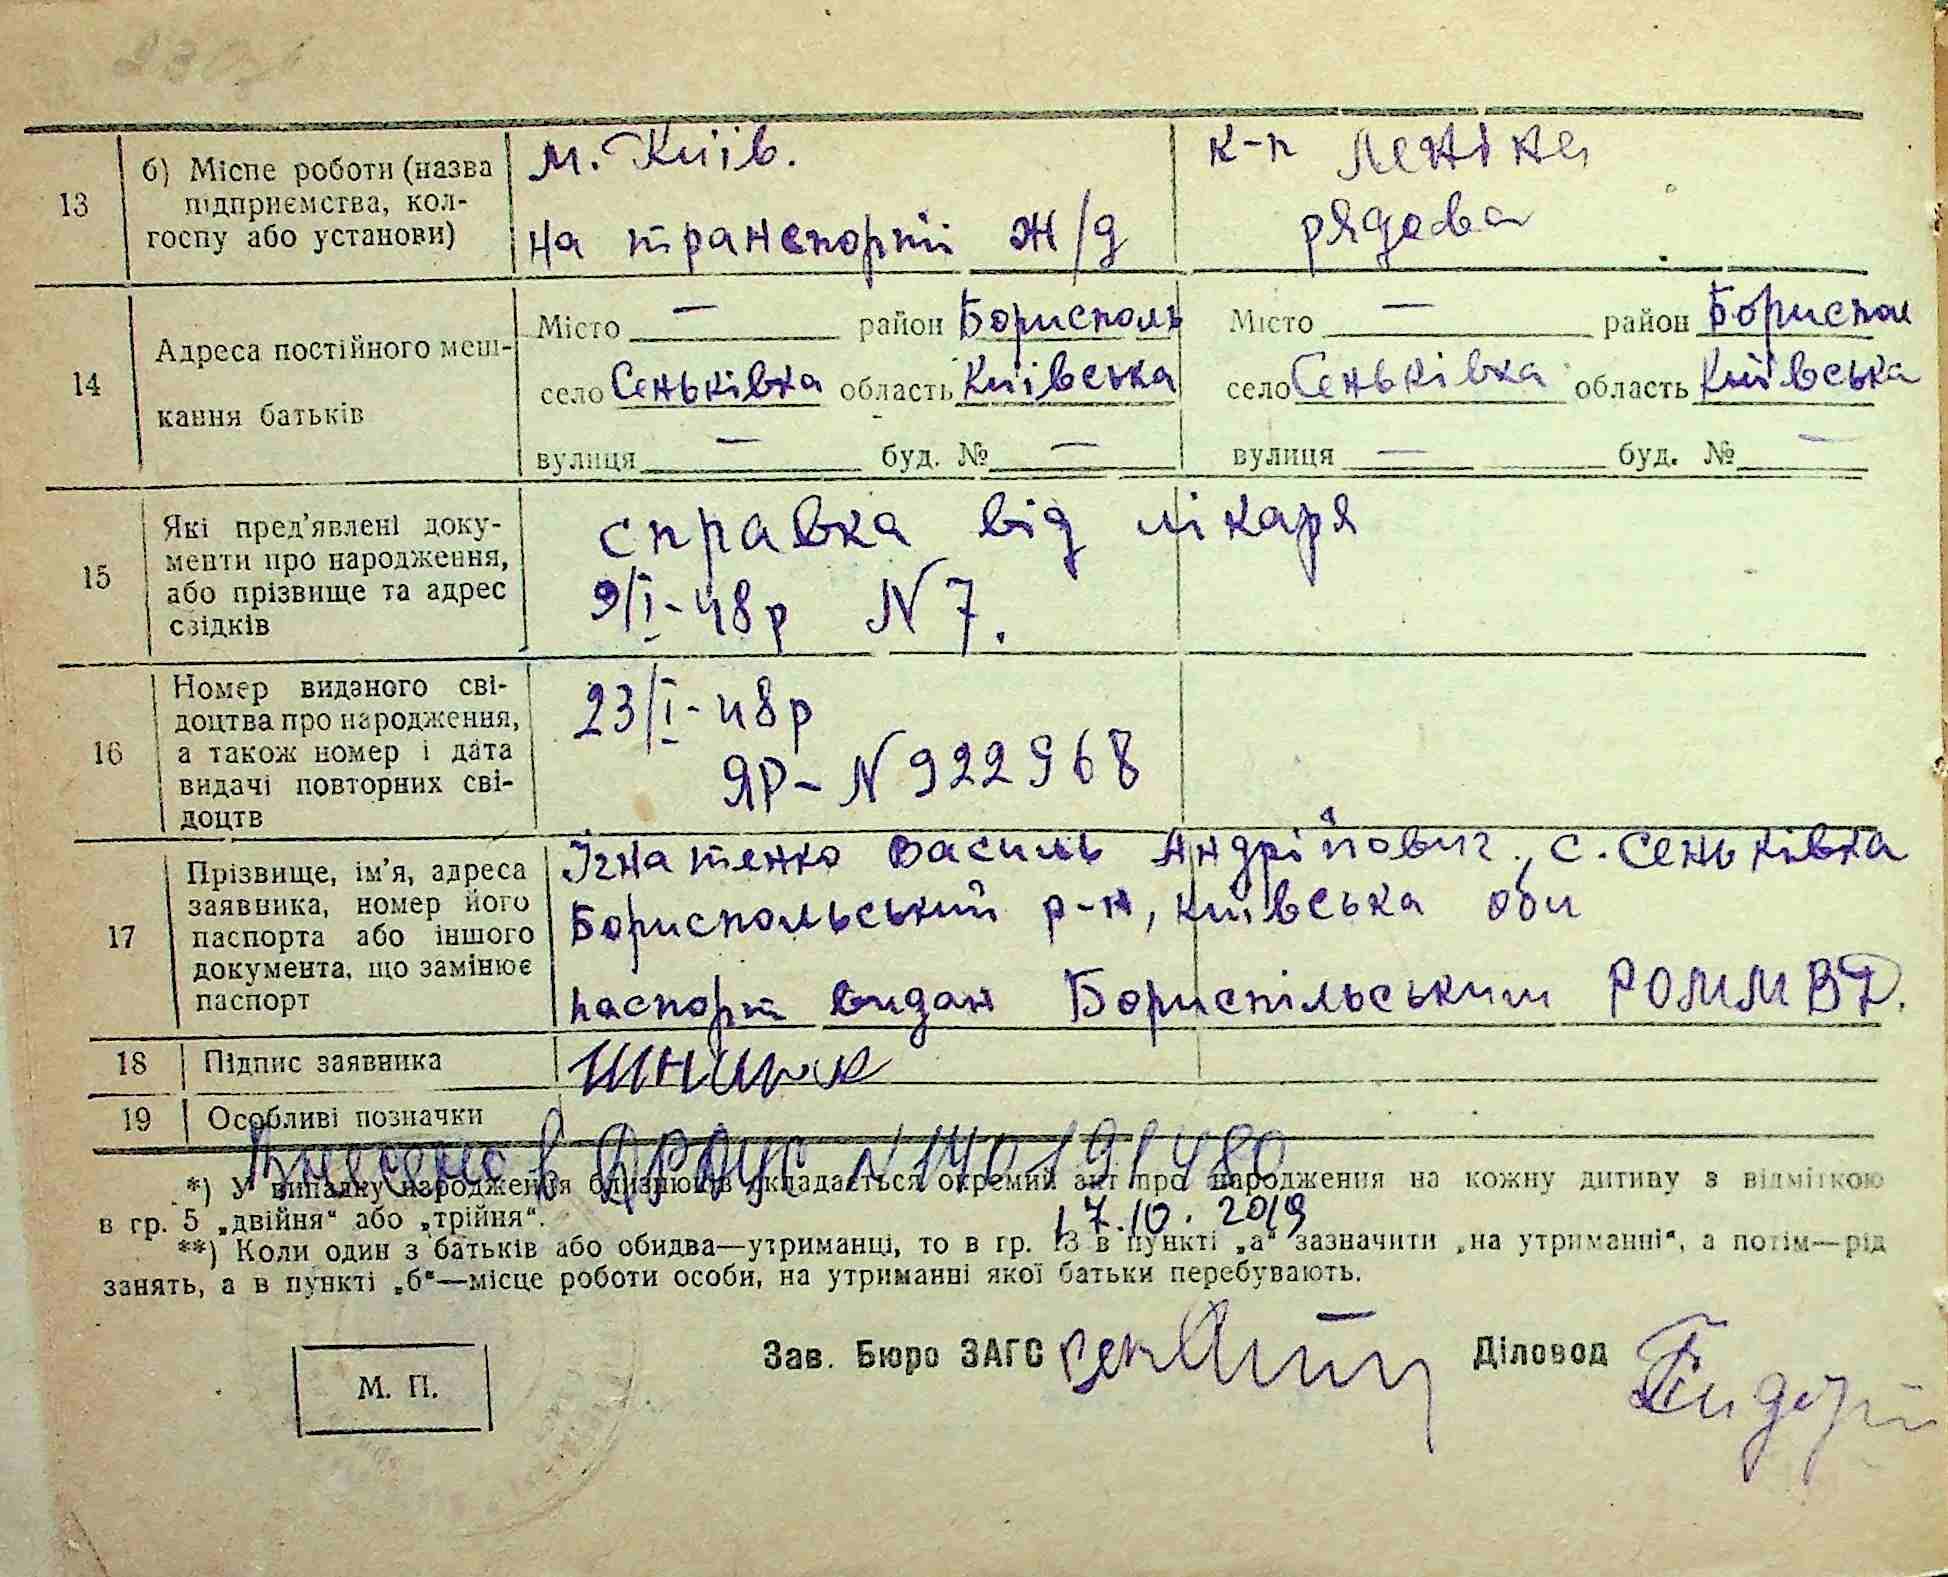 13
б) Місце роботи (назва
підприємства, кол-
госпу або установи)
м. Київ.
на транспорті ж/д
к-п Леніна
рядова
14
Адреса постійного меш-
кання батьків
Місто — район Бориспол
село Сеньківка область Київська
вулиця — буд. № —
Місто — район Бориспол
село Сеньківка область Київська
вулиця — буд. № —
15
Які пред'явлені доку-
менти про народження,
або прізвище та адрес
свідків
справка від лікаря
9/I-48р N 7.
16
Номер виданого сві-
доцтва про народження,
а також номер і дата
видачі повторних сві-
доцтв
23/I-48р
ЯР-N 922968
17
Прізвище, ім'я, адреса
заявника, номер його
паспорта або іншого
документа, що замінює
паспорт
Ігнатенко Василь Андрійович, с. Сеньківка
Бориспольський р-н, Київська обл
паспорт видан Бориспільським РОММВД.
18
Підпис заявника
19
Особливі позначки
Внесено в ДРАЦС N 140191480
17.10.2019
*) У випадку народження близнюків складається окремий акт про народження на кожну дитину з відміткою
в гр. 5 „двійня“ або „трійня“.
**) Коли один з батьків або обидва—утриманці, то в гр. 13 в пункті „а“ зазначити „на утриманні“, а потім—рід
занять, а в пункті „б“—місце роботи особи, на утриманні якої батьки перебувають.
Зав. Бюро ЗАГС
Діловод
М. П.